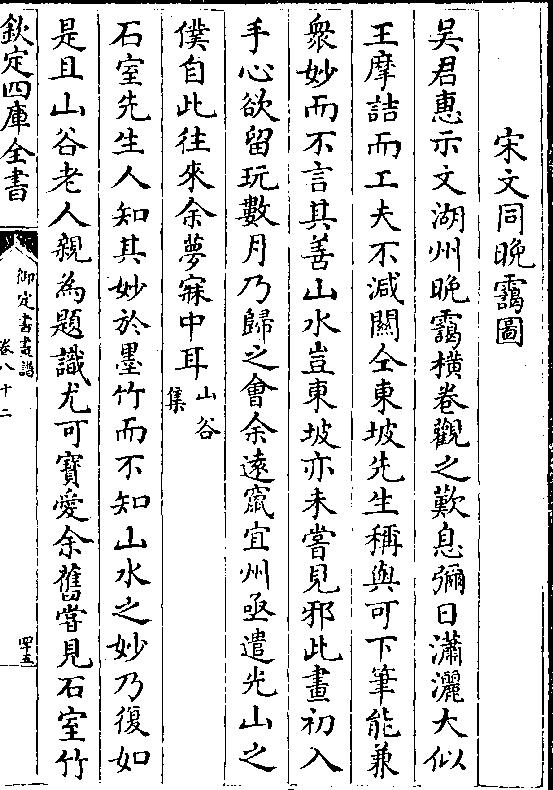 宋文同晚靄圖
吳君惠示文湖州晚靄橫卷觀之歎息彌日瀟灑大似
王摩詰而工夫不減關仝東坡先生稱與可下筆能兼
衆妙而不言其善山水豈東坡亦未嘗見邪此畫初入
手心欲留玩數月乃歸之會余遠竄宜州亟遣光山之
僕自此往來余夢寐中耳山谷
集
石室先生人知其妙於墨竹而不知山水之妙乃復如
是且山谷老人親為題識尤可寶愛余舊嘗見石室竹
欽定四庫全書
御定書畫譜
卷八十二
四十五